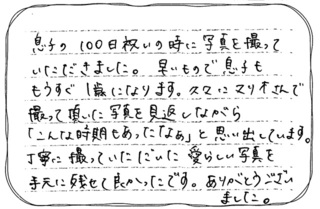 息子の100日祝いの時に写真を撮って
いただきました。早いもので息子も
もうすぐ1歳になります。久々にマリオさんで
撮って頂いた写真を見返しながら
「こんな時期もあったなぁ」と思い出しています。
丁寧に撮っていただいた愛らしい写真を
手元に残せて良かったです。ありがとうござい
ました。